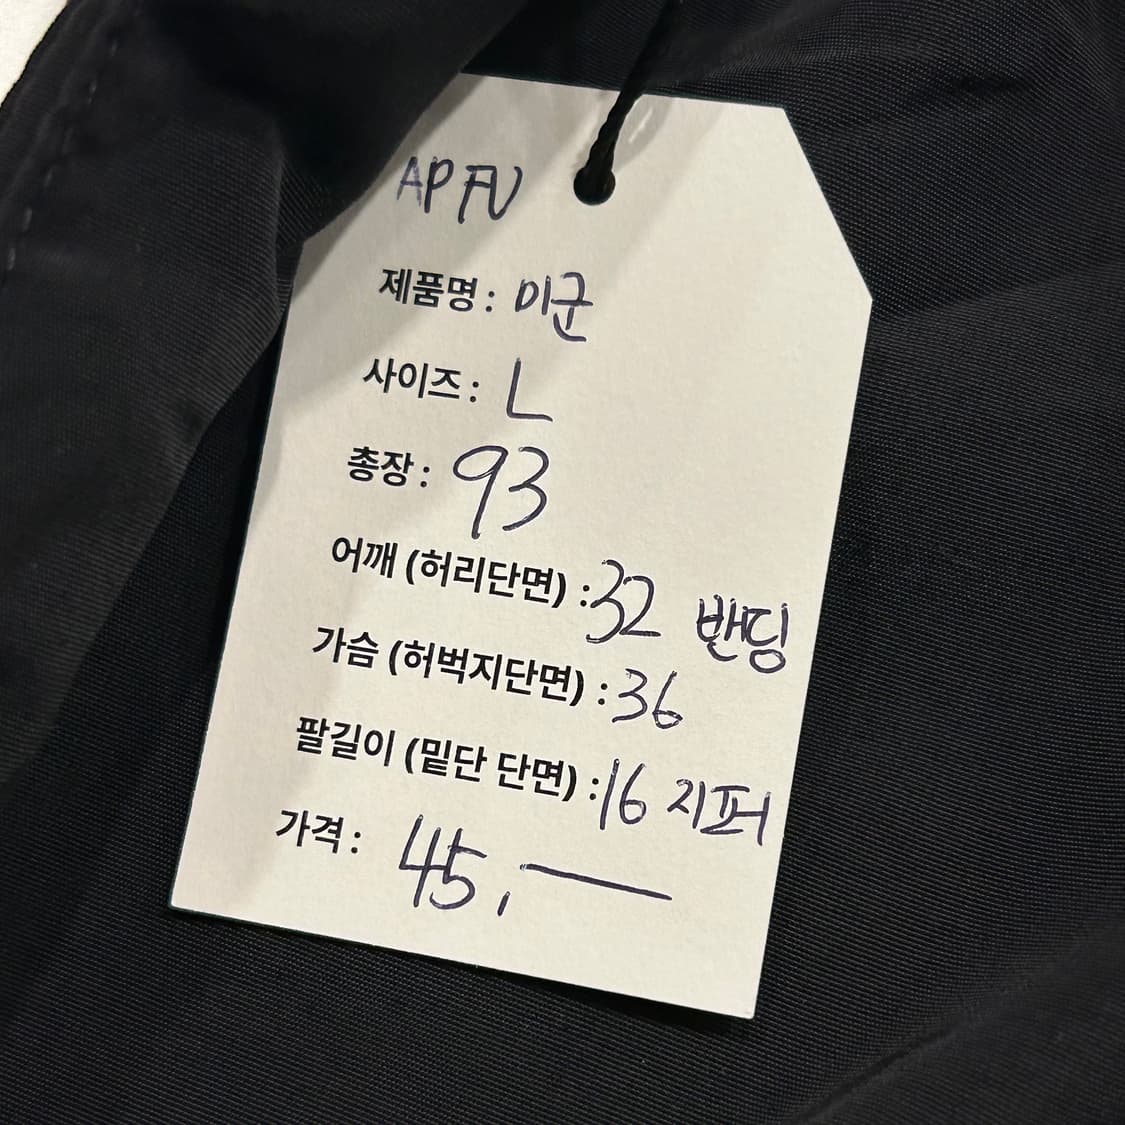 APFU
제품명 : 미군
사이즈 : L
총장 : 93
어깨 (허리단면) : 32 밴딩
가슴 (허벅지단면) : 36
팔길이 (밑단 단면) : 16 지퍼
가격 : 45,—